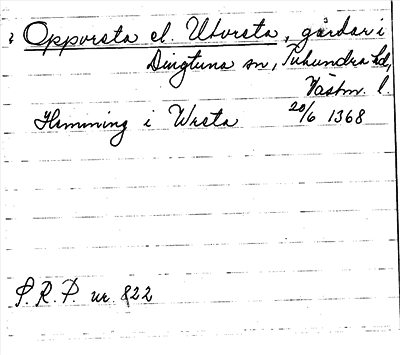 Opporsta el. Utorsta, gårdar i
Dingtuna sn, Tuhundra hd,
Västm. l.
Hemming i Wrsta 20/6 1368
S.R.P. nr. 822